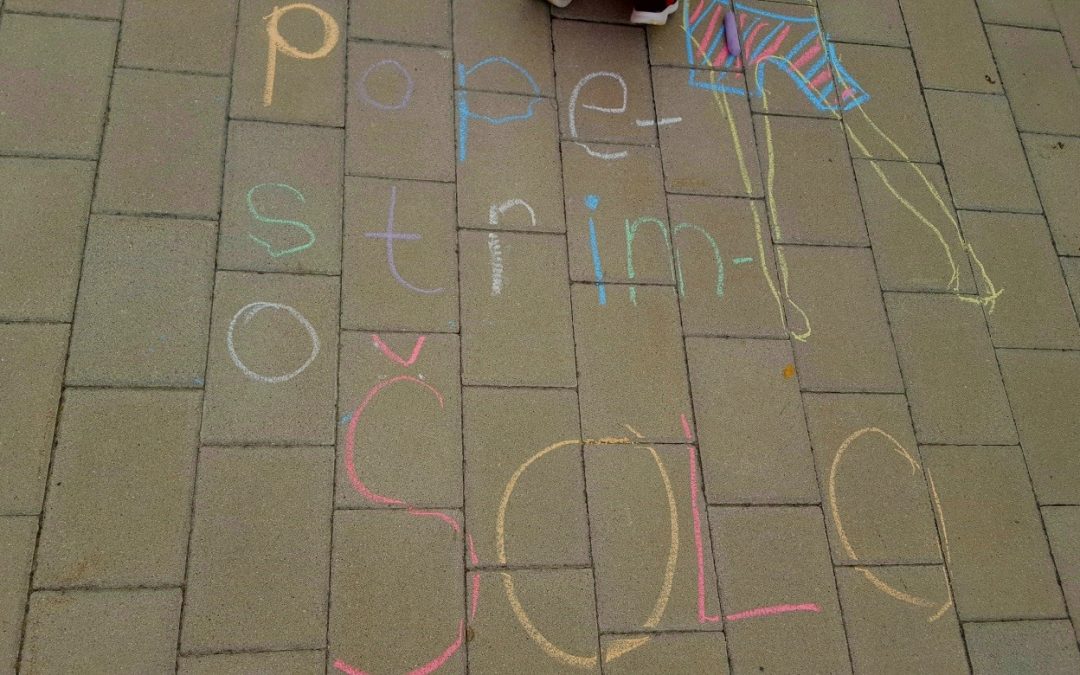 Pope-
strim-
o ŠOLO